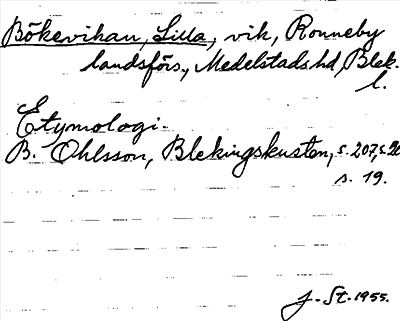 Bökevikan, Lilla, vik, Ronneby
landsförs., Medelstads hd, Blek.
l.
Etymologi.
B. Ohlsson, Blekingskusten, s. 207, s.
s. 19.
J. St. 1955.